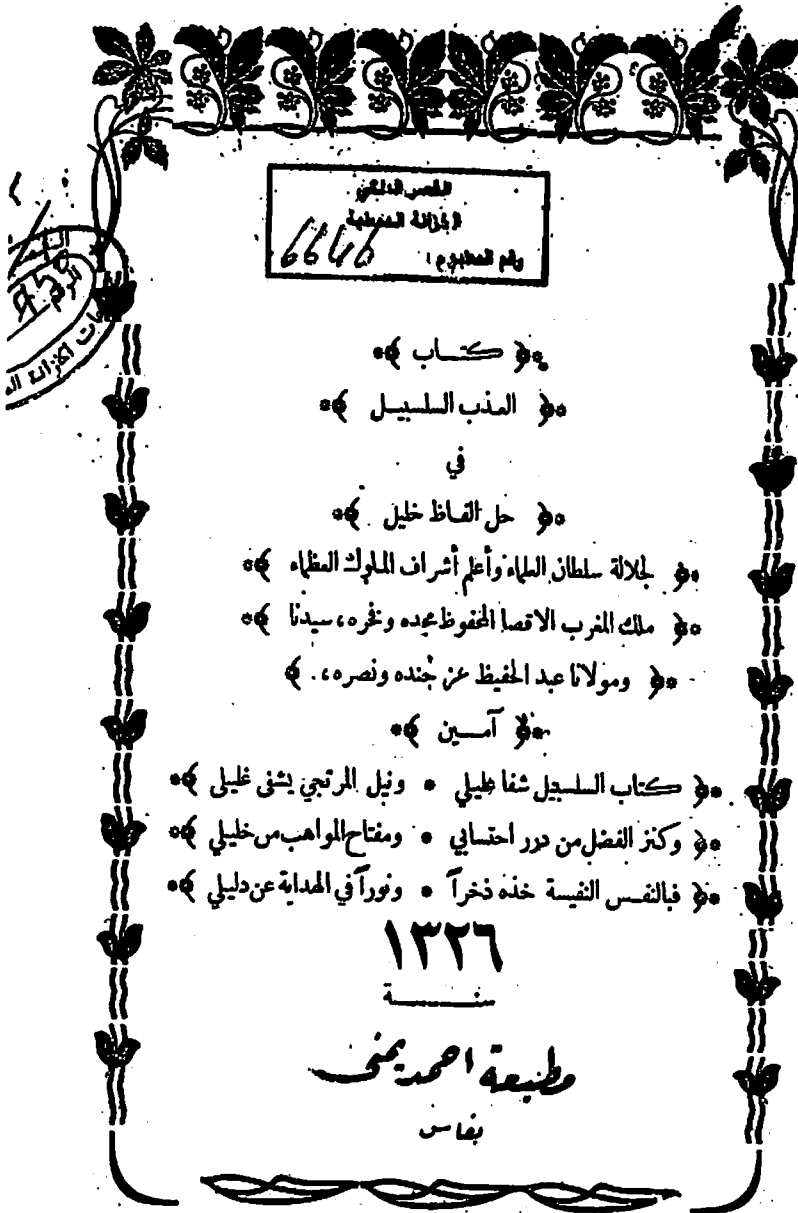 القصر الملكي
الخزانة
رقم : 6646
الرقم
كتاب
العذب السلسبيل
في
حل الفاظ خليل
لجلالة سلطان العلماء وأعلم أشراف الملوك العظماء
ملك المغرب الاقصا المحفوظ مجده وفخره، سيدنا
ومولانا عبد الحفيظ عز جنده ونصره،
آمين
كتاب السلسبيل شفا عليلي * ونيل المرتجي يشفى غليلى
وكنز الفضل من درر احتسابي * ومفتاح المواهب من خليلي
فبالنفس النفيسة خذه ذخراً * ونوراً في الهداية عن دليلي
١٣٢٦
سنة
مطبعة احمد يمنى
بفاس